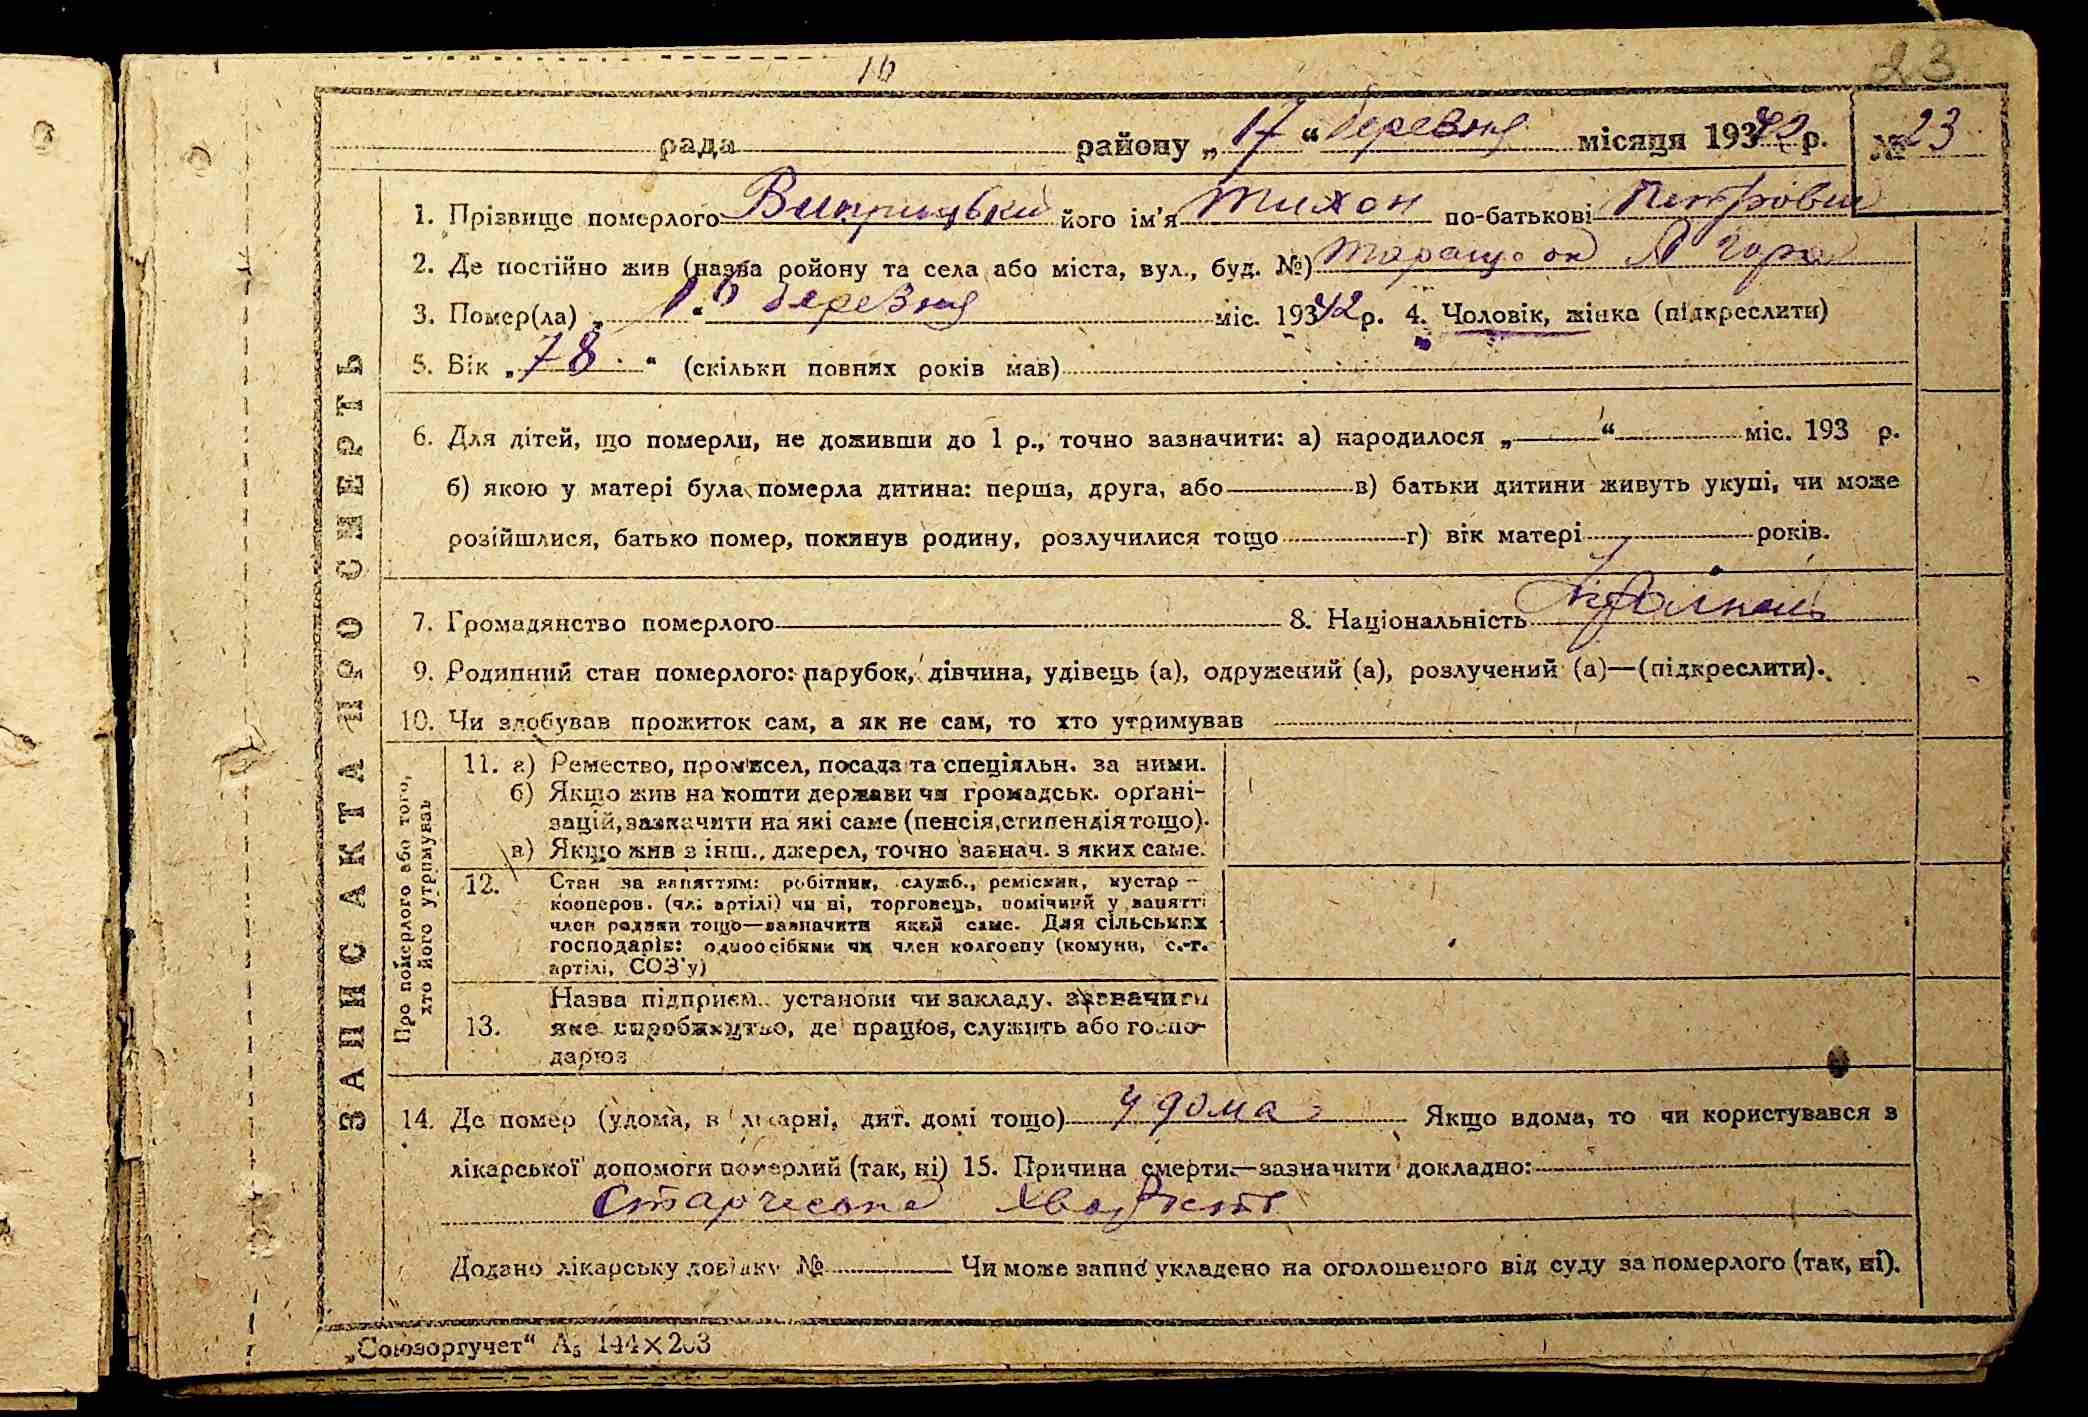 16
23
рада району „17“ березня місяця 1942 р. № 23
ЗАПИС АКТА ПРО СМЕРТЬ
1. Прізвище померлого його ім'я Тихон по-батькові Петрович
2. Де постійно жив (назва ройону та села або міста, вул., буд. №) Л гора
3. Помер(ла) „16“ березня міс. 1942 р. 4. Чоловік, жінка (підкреслити)
5. Вік „78“ (скільки повних років мав)
6. Для дітей, що померли, не доживши до 1 р., точно зазначити: а) народилося „ “ міс. 193 р.
б) якою у матері була померла дитина: перша, друга, або в) батьки дитини живуть укупі, чи може
розійшлися, батько помер, покинув родину, розлучилися тощо г) вік матері років.
7. Громадянство померлого 8. Національність
9. Родинний стан померлого: парубок, дівчина, удівець (а), одружений (а), розлучений (а)—(підкреслити).
10. Чи здобував прожиток сам, а як не сам, то хто утримував
Про померлого або того, хто його утримував
11. а) Ремество, промисел, посада та спеціяльн. за ними.
б) Якщо жив на кошти держави чи громадськ. орґані-
зацій, зазначити на які саме (пенсія, стипендія тощо).
в) Якщо жив з інш., джерел, точно зазнач. з яких саме.
12. Стан за заняттям: робітник, служб., ремісник, кустар —
кооперов. (чл. артілі) чи ні, торговець, помічний у занятті
член родини тощо—зазначити який саме. Для сільських
господарів: одноосібник чи член колгоспу (комуни, с.-г.
артілі, СОЗ'у)
13. Назва підприєм. установи чи закладу. зазначити
яке виробництво, де працює, служить або госпо-
дарює
14. Де помер (удома, в лікарні, дит. домі тощо) удома Якщо вдома, то чи користувався з
лікарської допомоги померлий (так, ні) 15. Причина смерти—зазначити докладно:
Старческа
Додано лікарську довідку № Чи може запис укладено на оголошеного від суду за померлого (так, ні).
„Союзоргучет“ А5 144×203